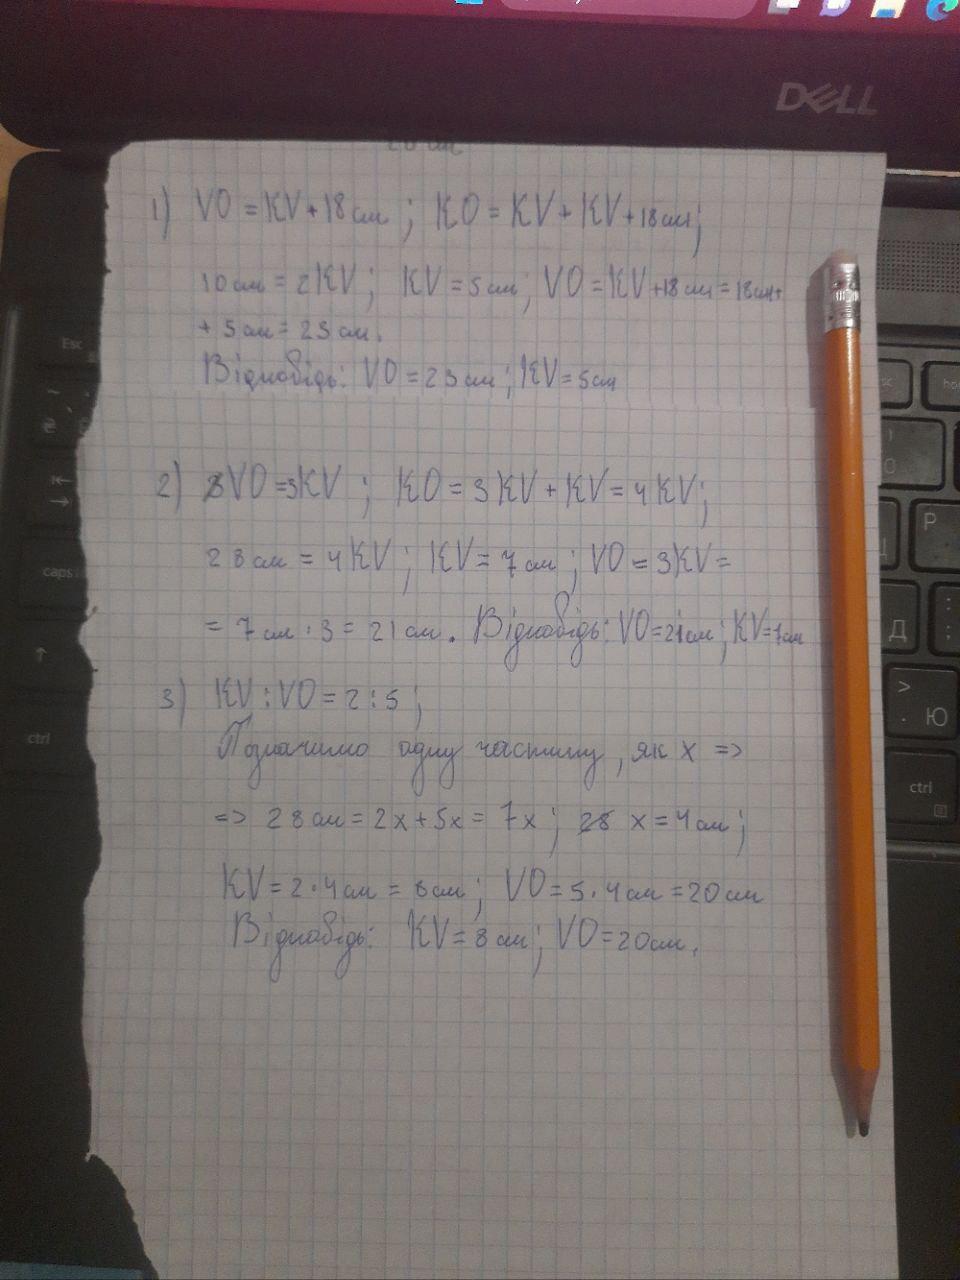 DELL
1) VO = KV + 18 см ; KO = KV + KV + 18 см;
10 см = 2 KV ; KV = 5 см ; VO = KV + 18 см = 18 см +
+ 5 см = 23 см.
Відповідь: VO = 23 см ; KV = 5 см
2) VO = 3KV ; KO = 3 KV + KV = 4 KV;
28 см = 4 KV ; KV = 7 см ; VO = 3KV =
= 7 см · 3 = 21 см . Відповідь: VO = 21 см ; KV = 7 см
3) KV : VO = 2 : 5 ;
Позначимо одну частину , як x =>
=> 28 см = 2x + 5x = 7x ; x = 4 см ;
KV = 2 · 4 см = 8 см ; VO = 5 · 4 см = 20 см
Відповідь: KV = 8 см ; VO = 20 см.
Esc
caps
ctrl
Р
Д
>
. Ю
ctrl